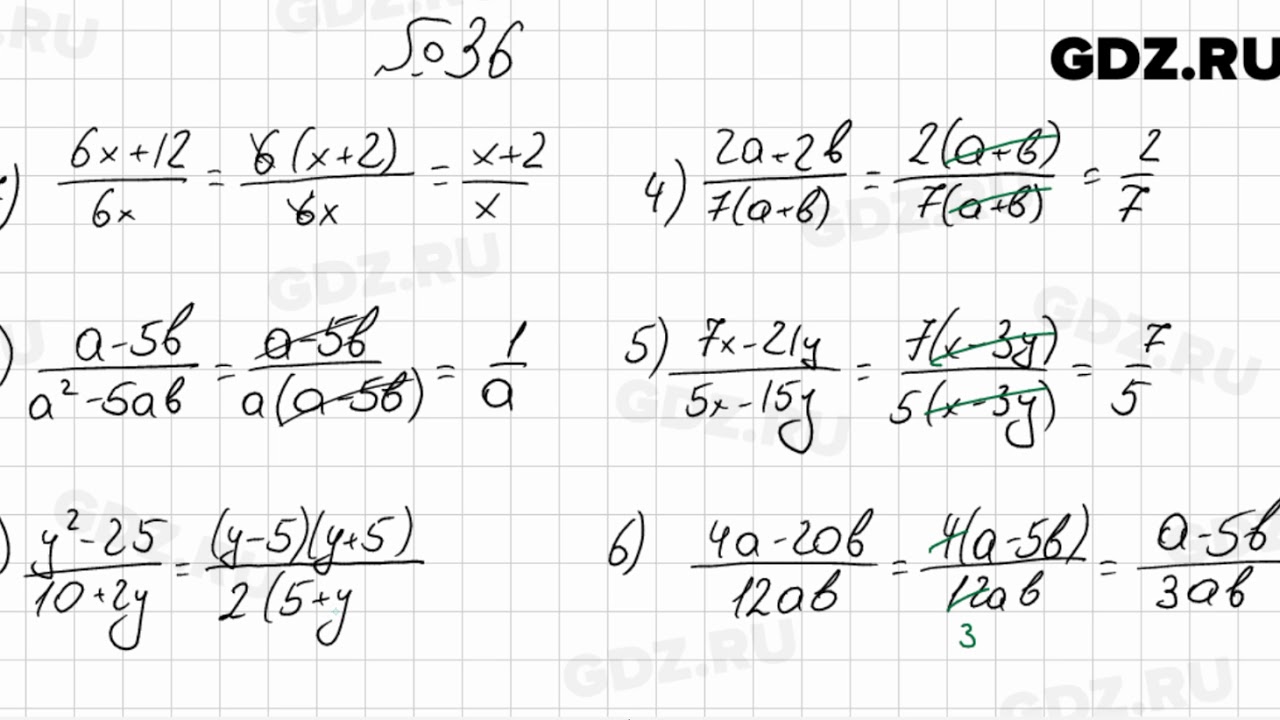 №36
GDZ.RU
) (6x+12)/(6x) = (6(x+2))/(6x) = (x+2)/x
4) (2a+2b)/(7(a+b)) = (2(a+b))/(7(a+b)) = 2/7
) (a-5b)/(a²-5ab) = (a-5b)/(a(a-5b)) = 1/a
5) (7x-21y)/(5x-15y) = (7(x-3y))/(5(x-3y)) = 7/5
) (y²-25)/(10+2y) = ((y-5)(y+5))/(2(5+y
6) (4a-20b)/(12ab) = (4(a-5b))/(12ab) = (a-5b)/(3ab)
3